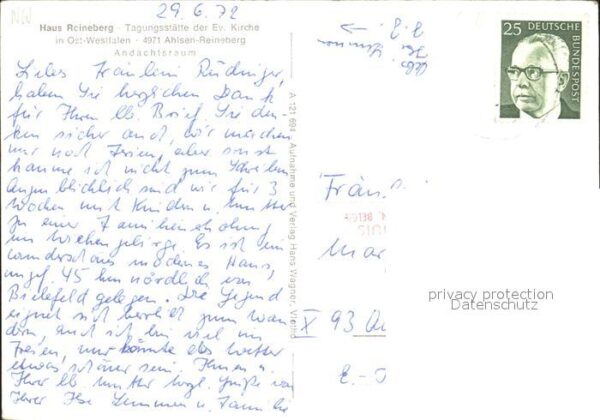 29.6.72
Haus Reineberg - Tagungsstätte der Ev. Kirche
in Ost-Westfalen - 4971 Ahlsen-Reineberg
Andachtsraum
Liebes Fräulein Rüdinger,
haben Sie herzlichen Dank
für Ihren lb. Brief. Sie den-
ken sicher auch, wir machen
nur noch Ferien, aber sonst
komme ich nicht zum Schreiben
Augenblicklich sind wir für 3
Wochen mit Kindern u. Mutter
zu einer Familienerholung
im Wiehengebirge. Es ist ein
wunderschönes modernes Haus,
ungef. 45 km nördlich von
Bielefeld gelegen. Die Gegend
eignet sich herrlich zum Wan-
dern, auch ich bin viel im
Freien, nur könnte das Wetter
etwas schöner sein. Ihnen u.
Ihrer lb. Mutter herzl. Grüße von
Ihrer Ilse Lemmen u. Familie
A 121 694 Aufnahme und Verlag Hans Wagner, Vlotho
25 DEUTSCHE
BUNDESPOST
Frän
Mar
X 93
privacy protection
Datenschutz